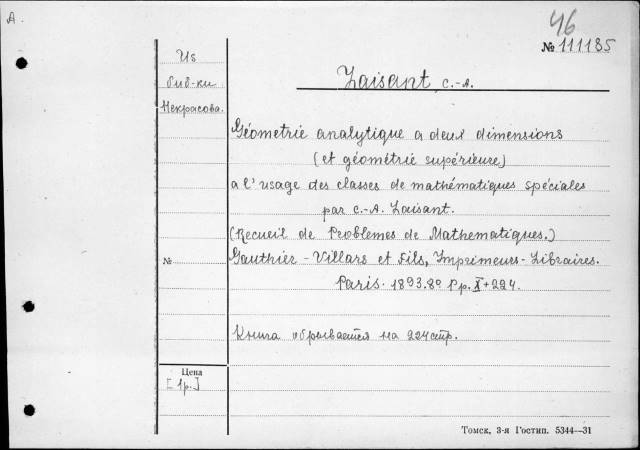 A.
46
№ 111185
Из
биб-ки
Некрасова.
Zaisant, C.-A.
Géometrie analytique a deux dimensions
(et géométrie supérieure)
a l'usage des classes de mathématiques spéciales
par C.-A. Zaisant.
(Recueil de Problemes de Mathematiques.)
№
Gauthier-Villars et Fils, Imprimeurs-Libraires.
Paris. 1893. 8° Pp. X+224.
Книга обрывается на 224 стр.
Цена
[1р.]
Томск, 3-я Гостип. 5344—31